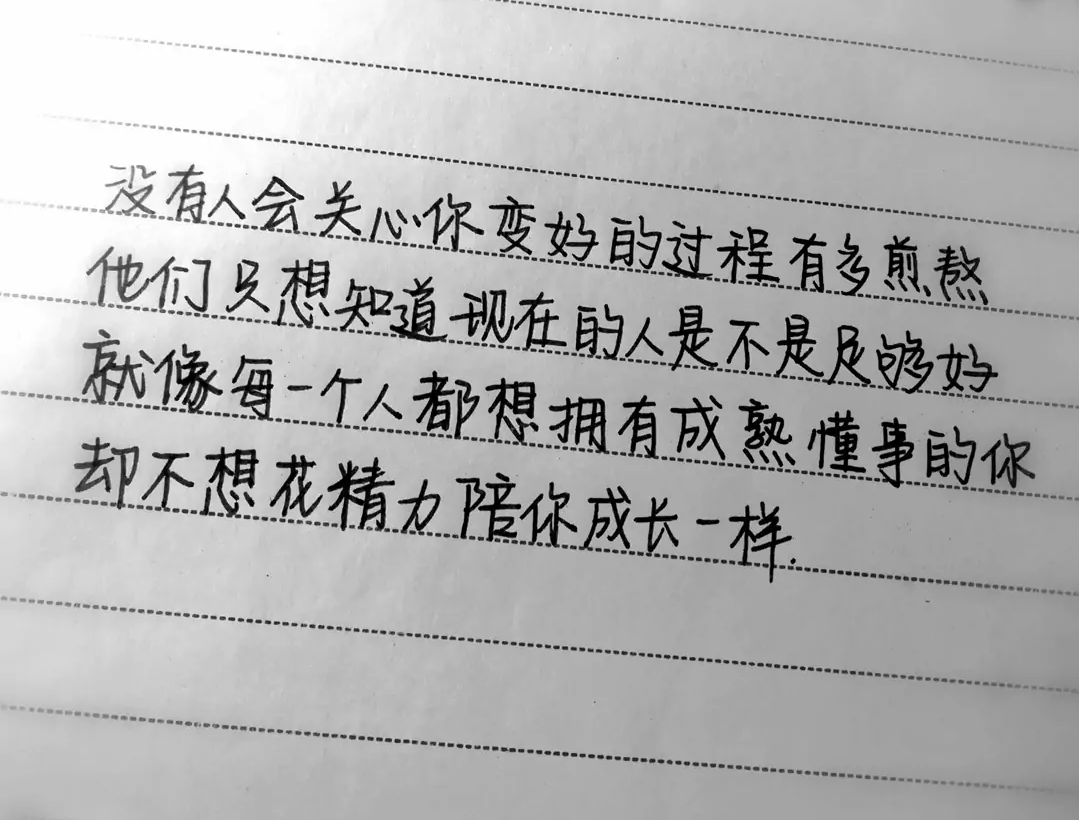 没有人会关心你变好的过程有多煎熬
他们只想知道现在的人是不是足够好
就像每一个人都想拥有成熟懂事的你
却不想花精力陪你成长一样.